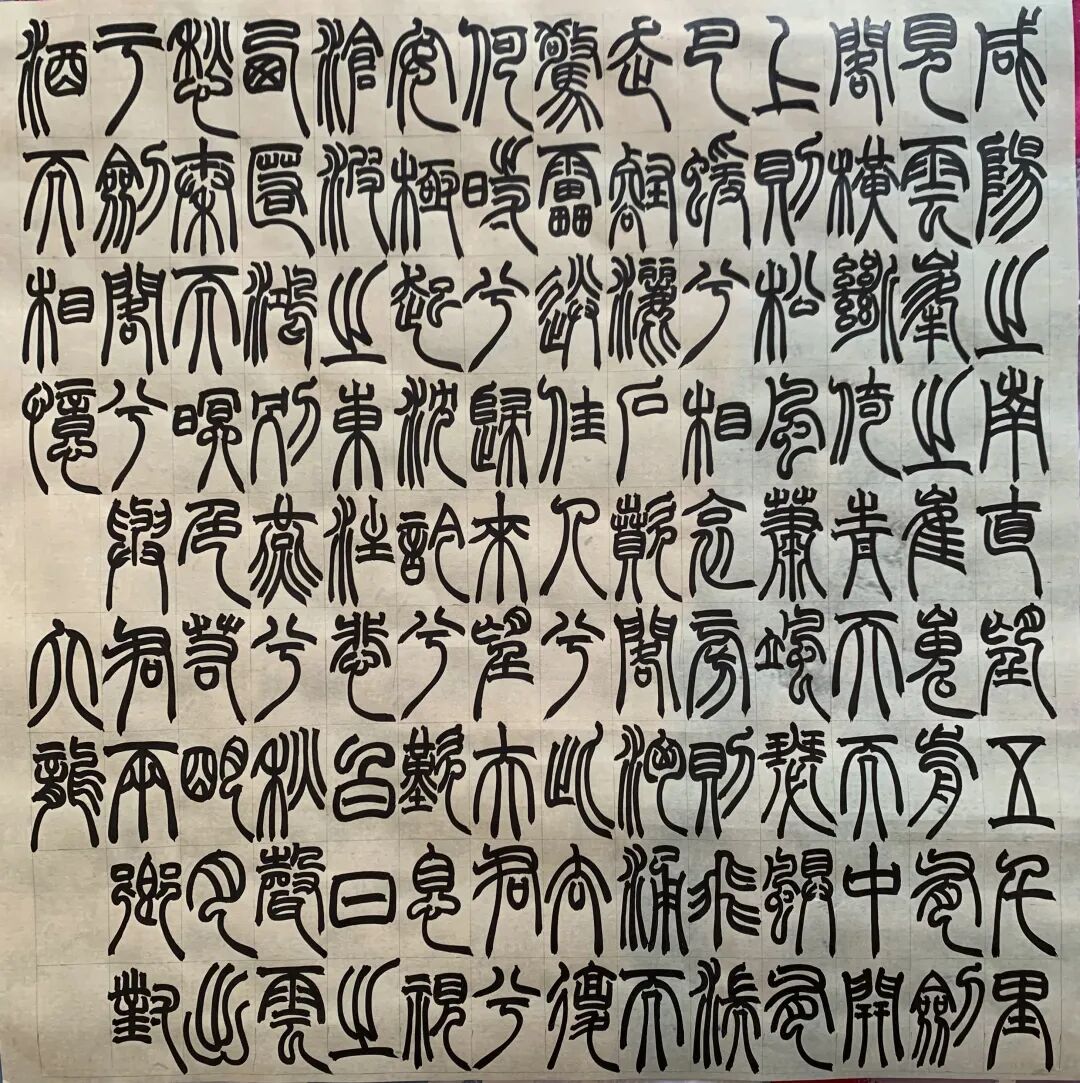 咸陽之南直望五千里
見雲峯之崔嵬前有劍
閣橫斷倚青天而中開
上則松風蕭颯瑟颶有
巴蝯兮相哀旁則飛湍
走壑灑石噴閣洶涌而
驚雷送佳人兮此去復
何時兮歸來望夫君兮
安極起沈吟兮歎息視
滄波之東注悲白日之
西匿鴻別燕兮秋聲雲
愁秦而暝色若明月出
于劍閣兮與君兩鄉對
酒而相憶 六龍